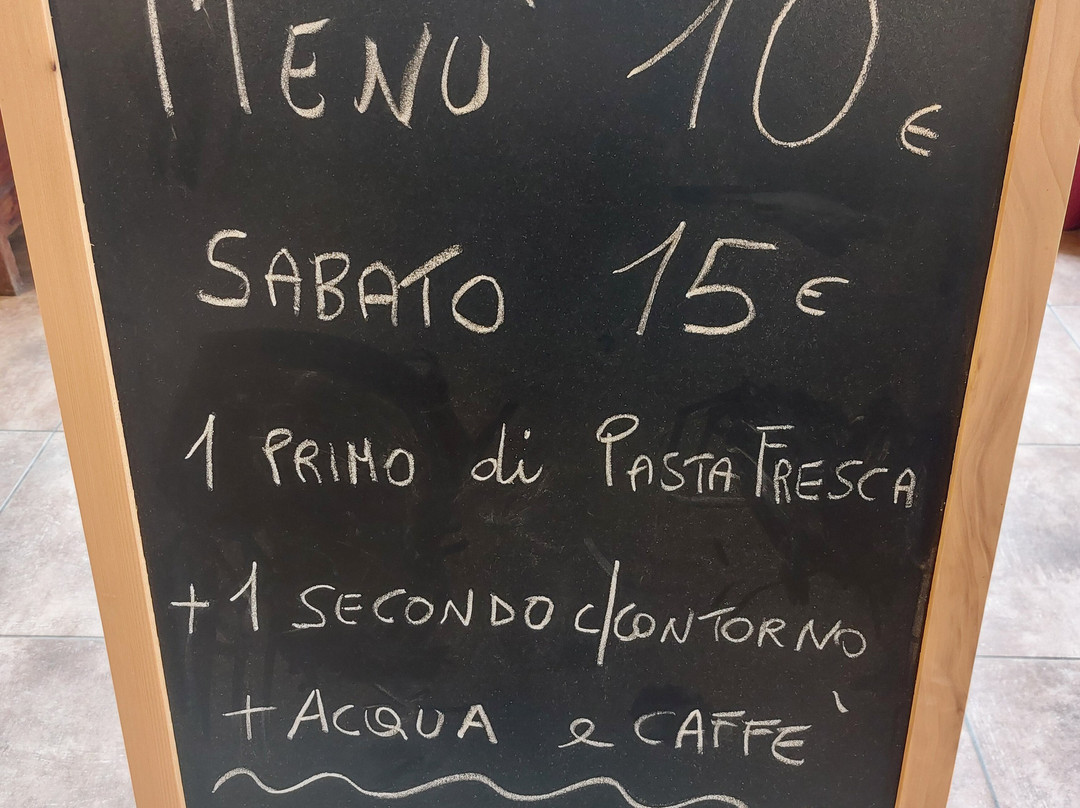 MENÙ 10 €
SABATO 15 €
1 PRIMO di PASTA FRESCA
+ 1 SECONDO c/CONTORNO
+ ACQUA e CAFFÈ